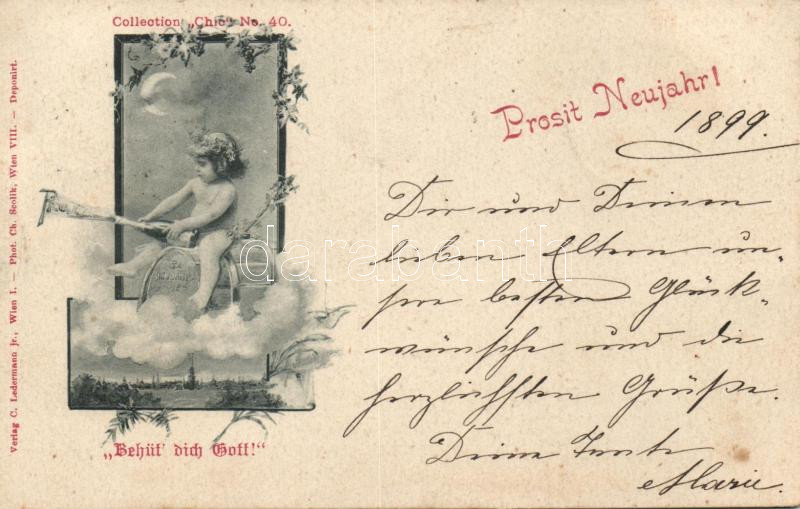 Collection „Chic" No. 40.
Verlag C. Ledermann jr., Wien I. — Phot. Ch. Scolik, Wien VIII. — Deponirt.
„Behüt' dich Gott!"
Prosit Neujahr!
1899.
Dir und Deinen
lieben Eltern un-
sere besten Glück-
wünsche und die
herzlichsten Grüße.
Deine Tante
Marie.
darabanth